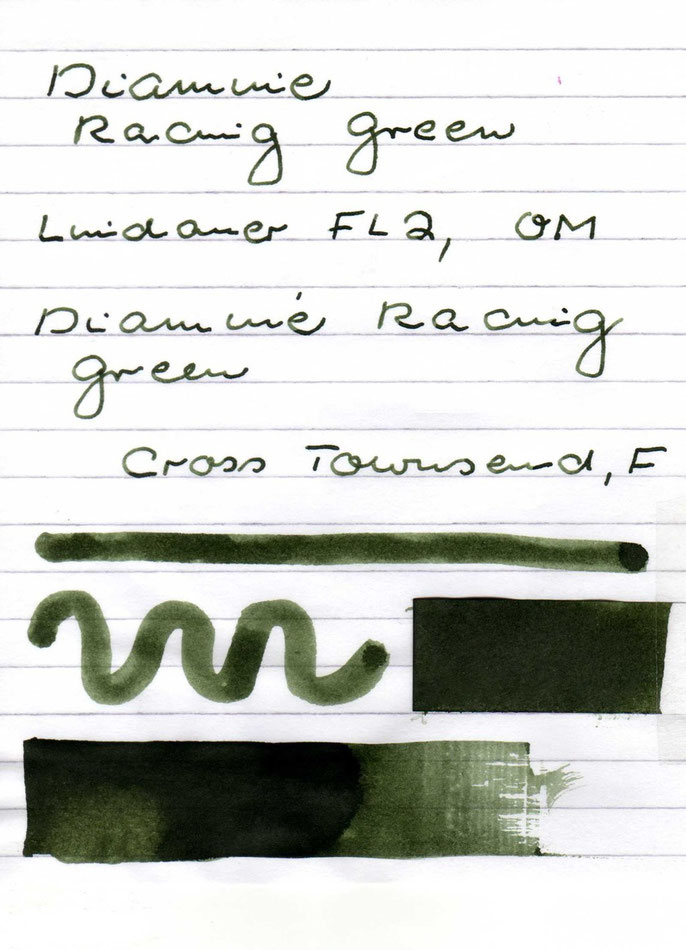 Diamine
Racing green
Lindauer FL2, OM
Diamine Racing
green
Cross Townsend, F